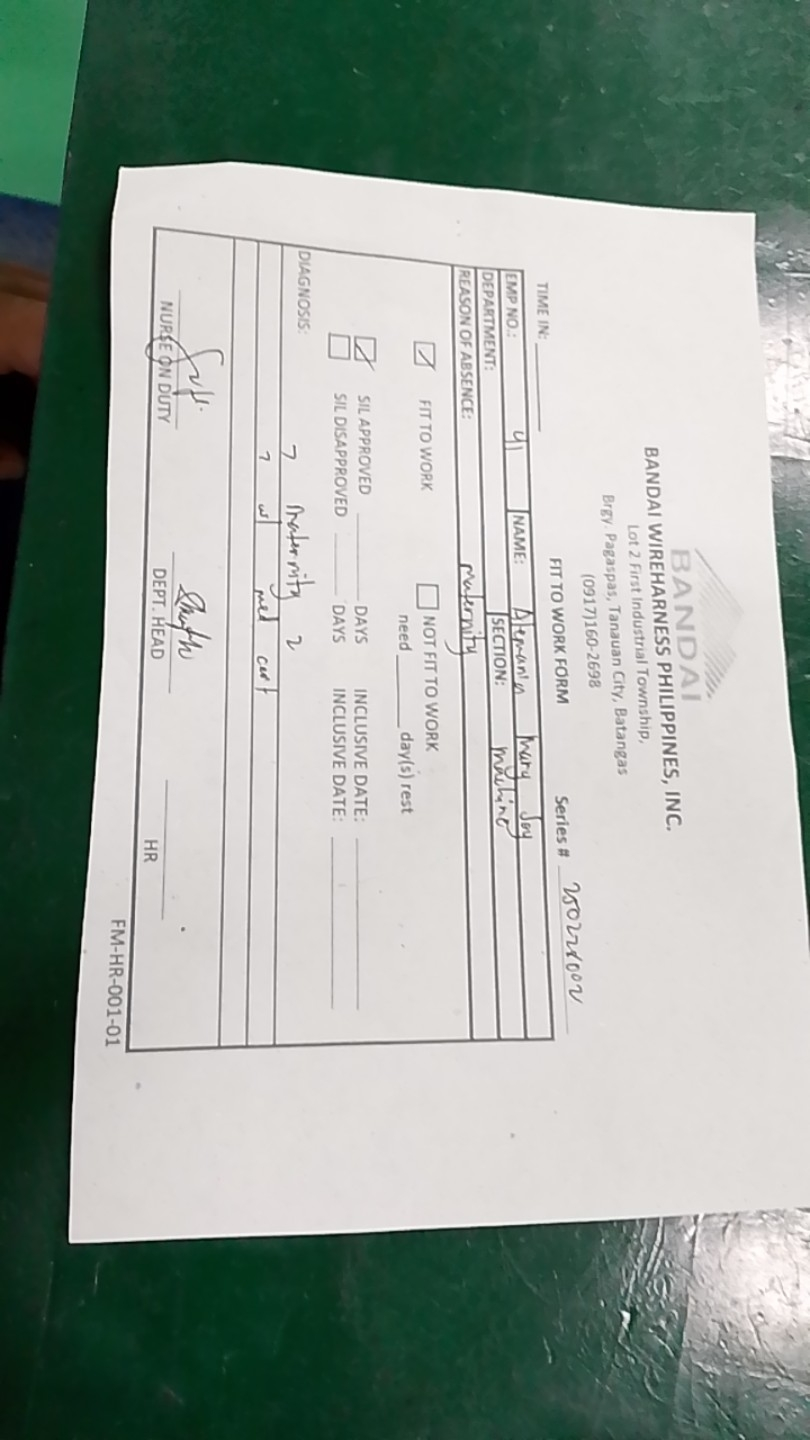 BANDAI
BANDAI WIREHARNESS PHILIPPINES, INC.
Lot 2 First Industrial Township,
Brgy. Pagaspas, Tanauan City, Batangas
(0917)160-2698
FIT TO WORK FORM Series #
TIME IN:
EMP NO.: NAME: Mary Joy
DEPARTMENT: SECTION: machine
REASON OF ABSENCE: maternity
FIT TO WORK NOT FIT TO WORK
need ____ day(s) rest
SIL APPROVED ____ DAYS INCLUSIVE DATE:
SIL DISAPPROVED ____ DAYS INCLUSIVE DATE:
DIAGNOSIS: maternity
w/ med cert
NURSE ON DUTY DEPT. HEAD HR
FM-HR-001-01